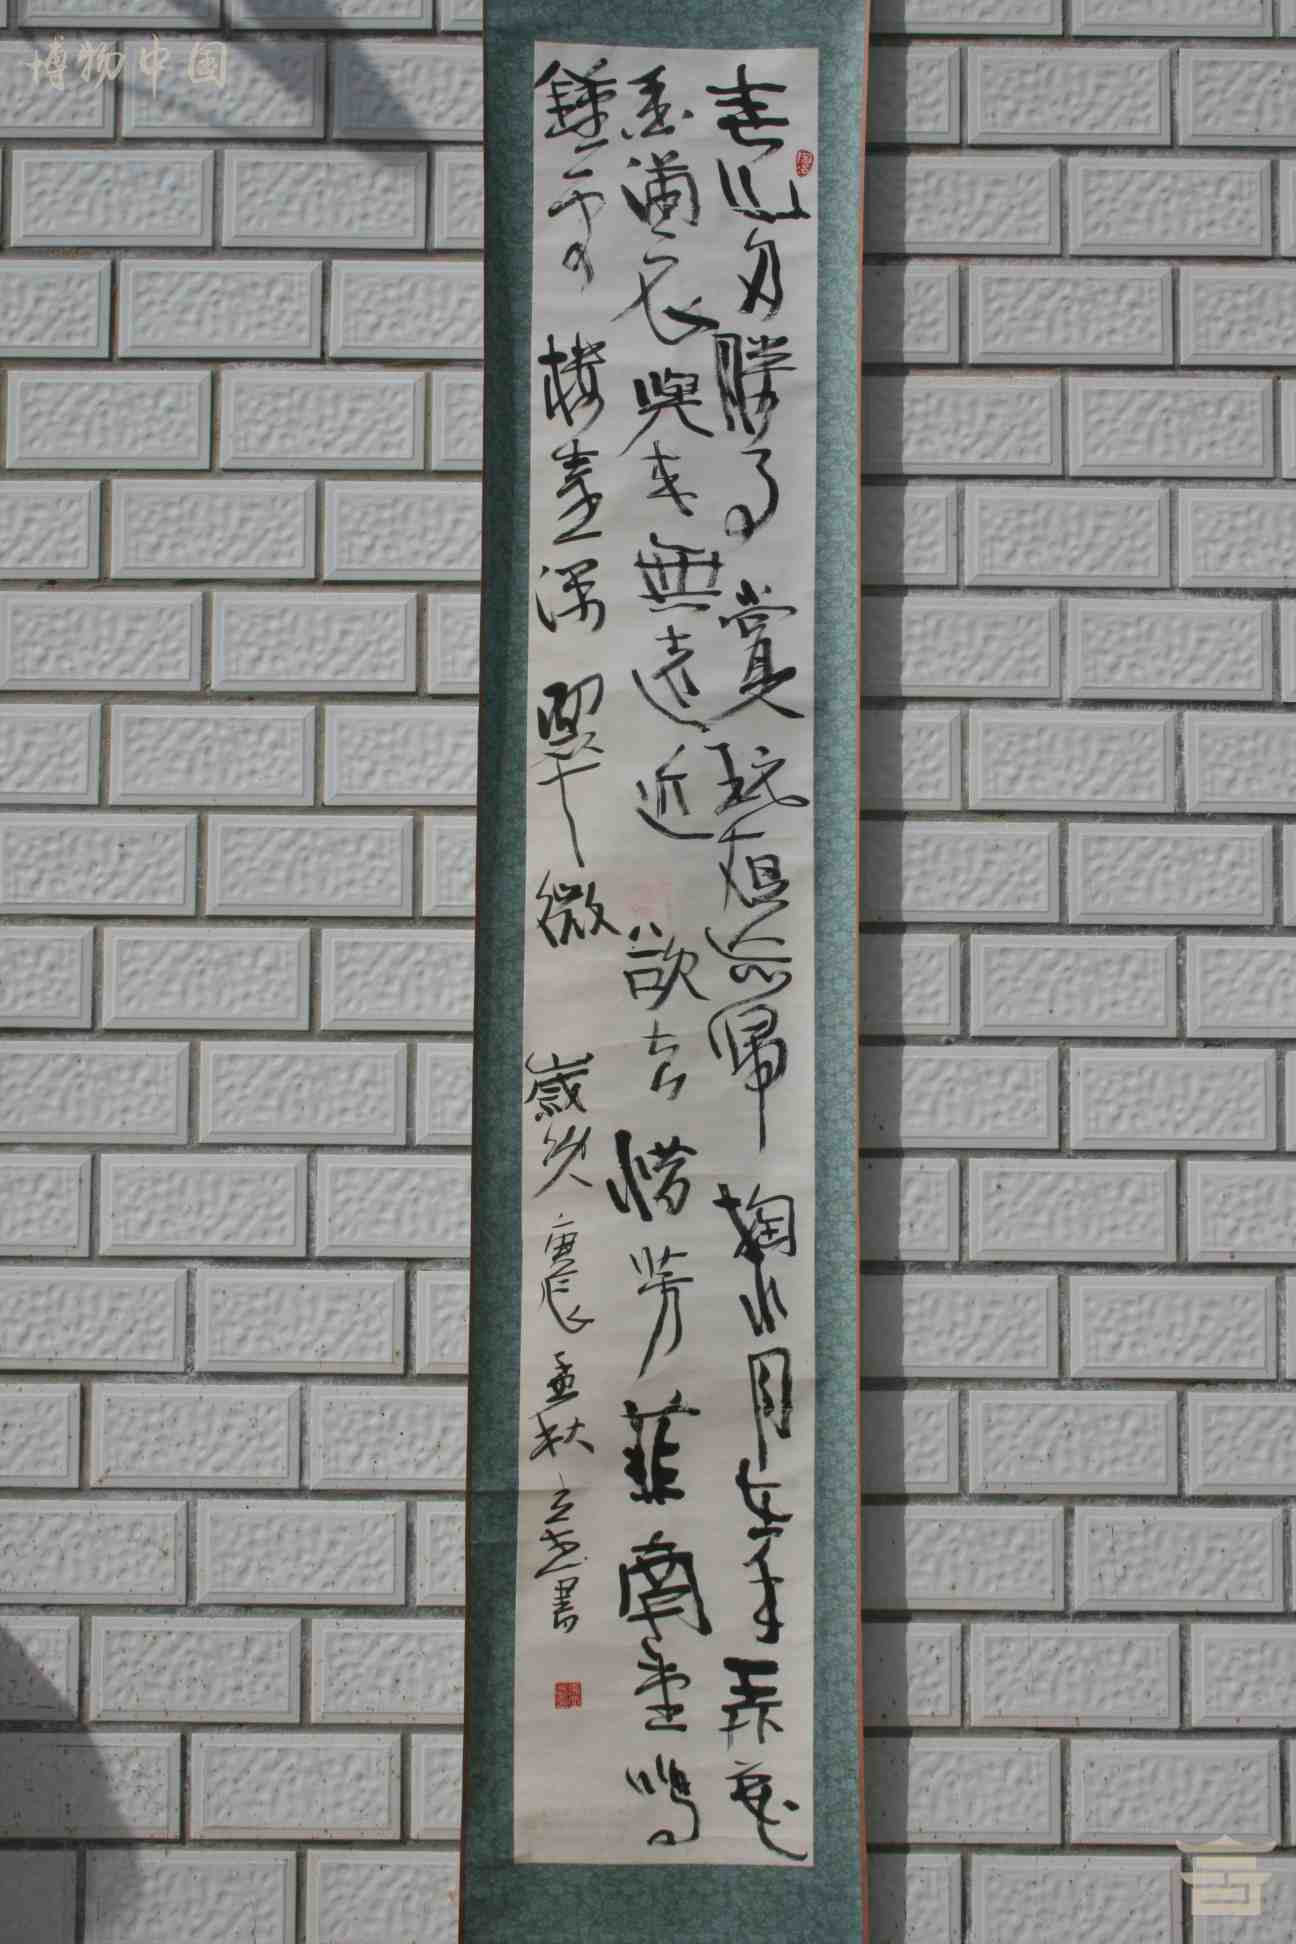 博物中国
春山多勝事賞玩夜忘歸掬水月在手弄花
香滿衣興來無遠近欲去惜芳菲南望鳴
鐘處樓臺深翠微歲次庚辰孟秋書